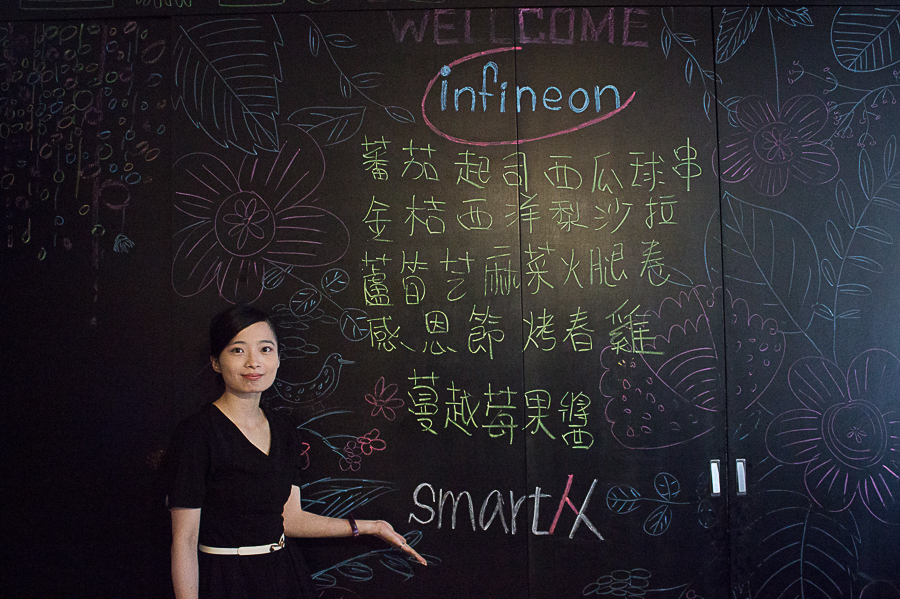 WELLCOME
infineon
蕃茄起司西瓜球串
金桔西洋梨沙拉
蘆筍芝麻菜火腿卷
感恩節烤春雞
蔓越莓果醬
smart X